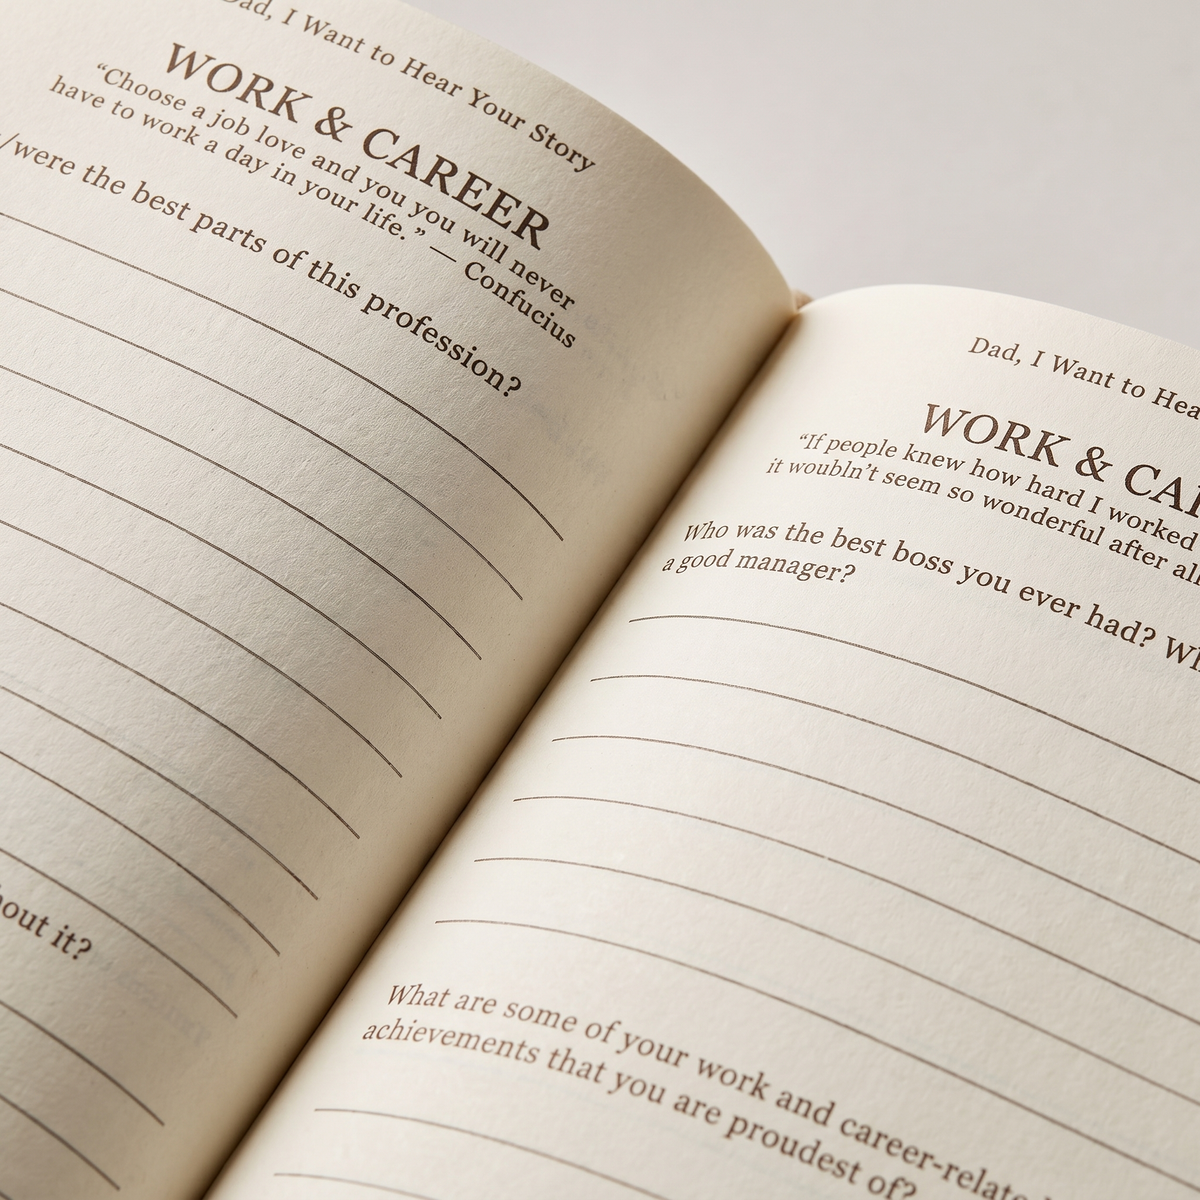 Dad, I Want to Hear Your Story
WORK & CAREER
“Choose a job love and you you will never
have to work a day in your life.” — Confucius
/were the best parts of this profession?
out it?
Dad, I Want to Hea
WORK & CA
“If people knew how hard I worked
it woubln’t seem so wonderful after all
Who was the best boss you ever had? Wh
a good manager?
What are some of your work and career-relat
achievements that you are proudest of?